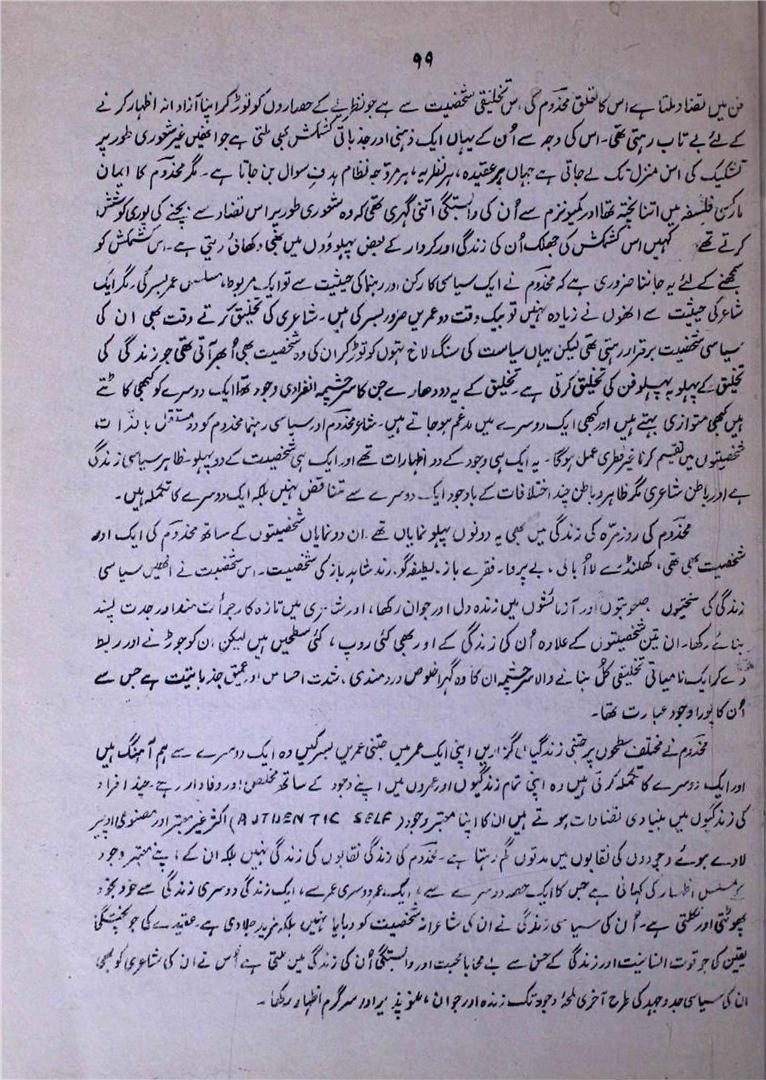 ۹۹
فن میں تضاد ملتا ہے اس کا تعلق مخدوم کی اس تخلیقی شخصیت سے ہے جو نظریے کے حصاروں کو توڑ کر اپنا آزادانہ اظہار کرنے
کے لئے بے تاب رہتی تھی۔ اس کی وجہ سے اُن کے یہاں ایک ذہنی اور جذباتی کشمکش بھی ملتی ہے جو انھیں غیر شعوری طور پر
تشکیک کی اس منزل تک لے جاتی ہے جہاں ہر عقیدہ، ہر نظریہ، ہر مروّجہ نظام ہدفِ سوال بن جاتا ہے۔ مگر مخدوم کا ایمان
مارکسی فلسفہ میں اتنا پختہ تھا اور کمیونزم سے اُن کی وابستگی اتنی گہری تھی کہ وہ شعوری طور پر اس تضاد سے بچنے کی پوری کوشش
کرتے تھے کہیں اس کشمکش کی جھلک اُن کی زندگی اور کردار کے بعض پہلوؤں میں بھی دکھائی دیتی ہے۔ اس کشمکش کو
سمجھنے کے لئے یہ جاننا ضروری ہے کہ مخدوم نے ایک سیاسی کارکن اور رہنما کی حیثیت سے تو ایک مربوط، مسلسل عمر بسر کی۔ مگر ایک
شاعر کی حیثیت سے انھوں نے زیادہ نہیں تو بیک وقت دو عمریں ضرور بسر کی ہیں۔ شاعری کی تخلیق کرتے وقت بھی ان کی
سیاسی شخصیت برقرار رہتی تھی لیکن یہاں سیاست کی سنگلاخ تہوں کو توڑ کر ان کی وہ شخصیت بھی اُبھر آتی تھی جو زندگی کی
تخلیق کے پہلو بہ پہلو فن کی تخلیق کرتی ہے۔ تخلیق کے یہ دو دھارے جن کا سرچشمہ انفرادی وجود تھا ایک دوسرے کو کبھی کاٹتے
ہیں کبھی متوازی بہتے ہیں اور کبھی ایک دوسرے میں مدغم ہو جاتے ہیں۔ شاعر مخدوم اور سیاسی رہنما مخدوم کو دو مستقل بالذات
شخصیتوں میں تقسیم کرنا غیر فطری عمل ہوگا۔ یہ ایک ہی وجود کے دو اظہارات تھے اور ایک ہی شخصیت کے دو پہلو۔ ظاہر سیاسی زندگی
ہے اور باطن شاعری مگر ظاہر و باطن چند اختلافات کے باوجود ایک دوسرے سے متناقض نہیں بلکہ ایک دوسرے کا تکملہ ہیں۔
مخدوم کی روز مرّہ کی زندگی میں بھی یہ دونوں پہلو نمایاں تھے۔ ان دو نمایاں شخصیتوں کے ساتھ مخدوم کی ایک اور
شخصیت بھی تھی، کھلنڈرے لا اُبالی، بے پروا۔ فقرے باز۔ لطیفہ گو۔ رند شاہد باز کی شخصیت۔ اس شخصیت نے انھیں سیاسی
زندگی کی سختیوں صعوبتوں اور آزمائشوں میں زندہ دل اور جوان رکھا، اور شاعری میں تازہ کار جرأت مند اور جدت پسند
بنائے رکھا۔ ان تین شخصیتوں کے علاوہ اُن کی زندگی کے اور بھی کئی روپ، کئی سطحیں ہیں لیکن ان کو جوڑنے اور ربط
دے کر ایک نامیاتی تخلیقی کُل بنانے والا سرچشمہ ان کا وہ گہرا خلوص دردمندی، شدت احساس اور عمیق جذباتیت ہے جس سے
اُن کا پورا وجود عبارت تھا۔
مخدوم نے مختلف سطحوں پر جتنی زندگیاں گزاریں اپنی ایک عمر میں جتنی عمریں بسر کیں وہ ایک دوسرے سے ہم آہنگ ہیں
اور ایک دوسرے کا تکملہ کرتی ہیں وہ اپنی تمام زندگیوں اور عمروں میں اپنے وجود کے ساتھ مخلص اور وفادار رہے۔ جیند افراد
کی زندگیوں میں بنیادی تضادات ہوتے ہیں ان کا اپنا معتبر وجود (AUTHENTIC SELF) اکثر غیر معتبر اور مصنوعی اوپر
لادے ہوئے وجودوں کی نقابوں میں مدتوں گم رہتا ہے۔ مخدوم کی زندگی نقابوں کی زندگی نہیں بلکہ ان کے اپنے معتبر وجود
کے مسلسل اظہار کی کہانی ہے جس کا ایک حصہ دوسرے سے، ایک عمر دوسری عمر سے، ایک زندگی دوسری زندگی سے خود بخود
پھوٹتی اور نکلتی ہے۔ اُن کی سیاسی زندگی نے ان کی شاعرانہ شخصیت کو دبایا نہیں بلکہ مزید جلا دی ہے۔ عقیدے کی جو پختگی
یقین کی جو قوت انسانیت اور زندگی کے حسن سے بے محابا محبت اور وابستگی اُن کی زندگی میں ملتی ہے اُس نے ان کی شاعری کو بھی
ان کی سیاسی جدوجہد کی طرح آخری لمحۂ وجود تک زندہ اور جوان، نمو پذیر اور سرگرم اظہار رکھا۔